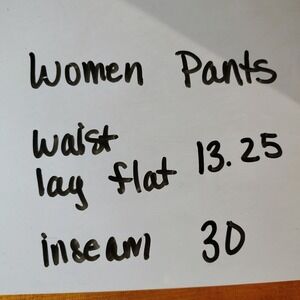 Women Pants
waist
lay flat 13.25
inseam 30